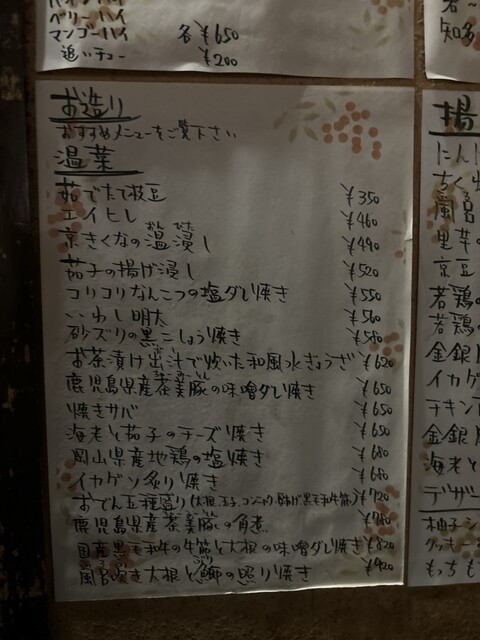 ベリーハイ
マンゴーハイ 各¥650
追いチュー ¥200
お造り
おすすめメニューをご覧下さい
温菜
茹でたて枝豆 ¥350
エイヒレ ¥460
京きくなの温浸し ¥490
茄子の揚げ浸し ¥520
コリコリなんこつの塩ダレ焼き ¥550
いわし明太 ¥560
砂ズリの黒こしょう焼き ¥580
お茶漬け出汁で炊いた和風水ぎょうざ ¥620
鹿児島県産茶美豚の味噌ダレ焼き ¥650
焼きサバ ¥650
海老と茄子のチーズ焼き ¥650
岡山県産地鶏の塩焼き ¥680
イカゲソ炙り焼き ¥680
おでん五種盛り(大根、玉子、コンニャク、黒毛和牛筋) ¥720
鹿児島県産茶美豚の角煮 ¥780
国産黒毛和牛の牛筋と大根の味噌ダレ焼き ¥820
風呂吹き大根と鰤の照り焼き ¥920
知多
揚
にん
ちく
風呂
里芋の
京豆
若鶏の
若鶏の
金銀
イカゲ
チキン
金銀
海老と
デザー
柚子シ
クッキー
もっちも